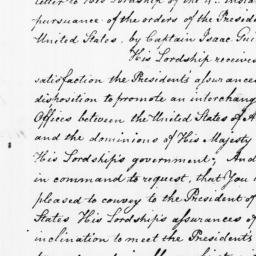 letter to His Lordship of the 4th. Instan
pursuance of the orders of the Preside
United States, by Captain Isaac Gui
His Lordship received
satisfaction the President's assurance
disposition to promote an interchang
Offices between the United States of A
and the dominions of His Majesty
His Lordship's government; And
in command to request, that You
pleased to convey to the President of
States His Lordship's assurances of
inclination to meet the President's